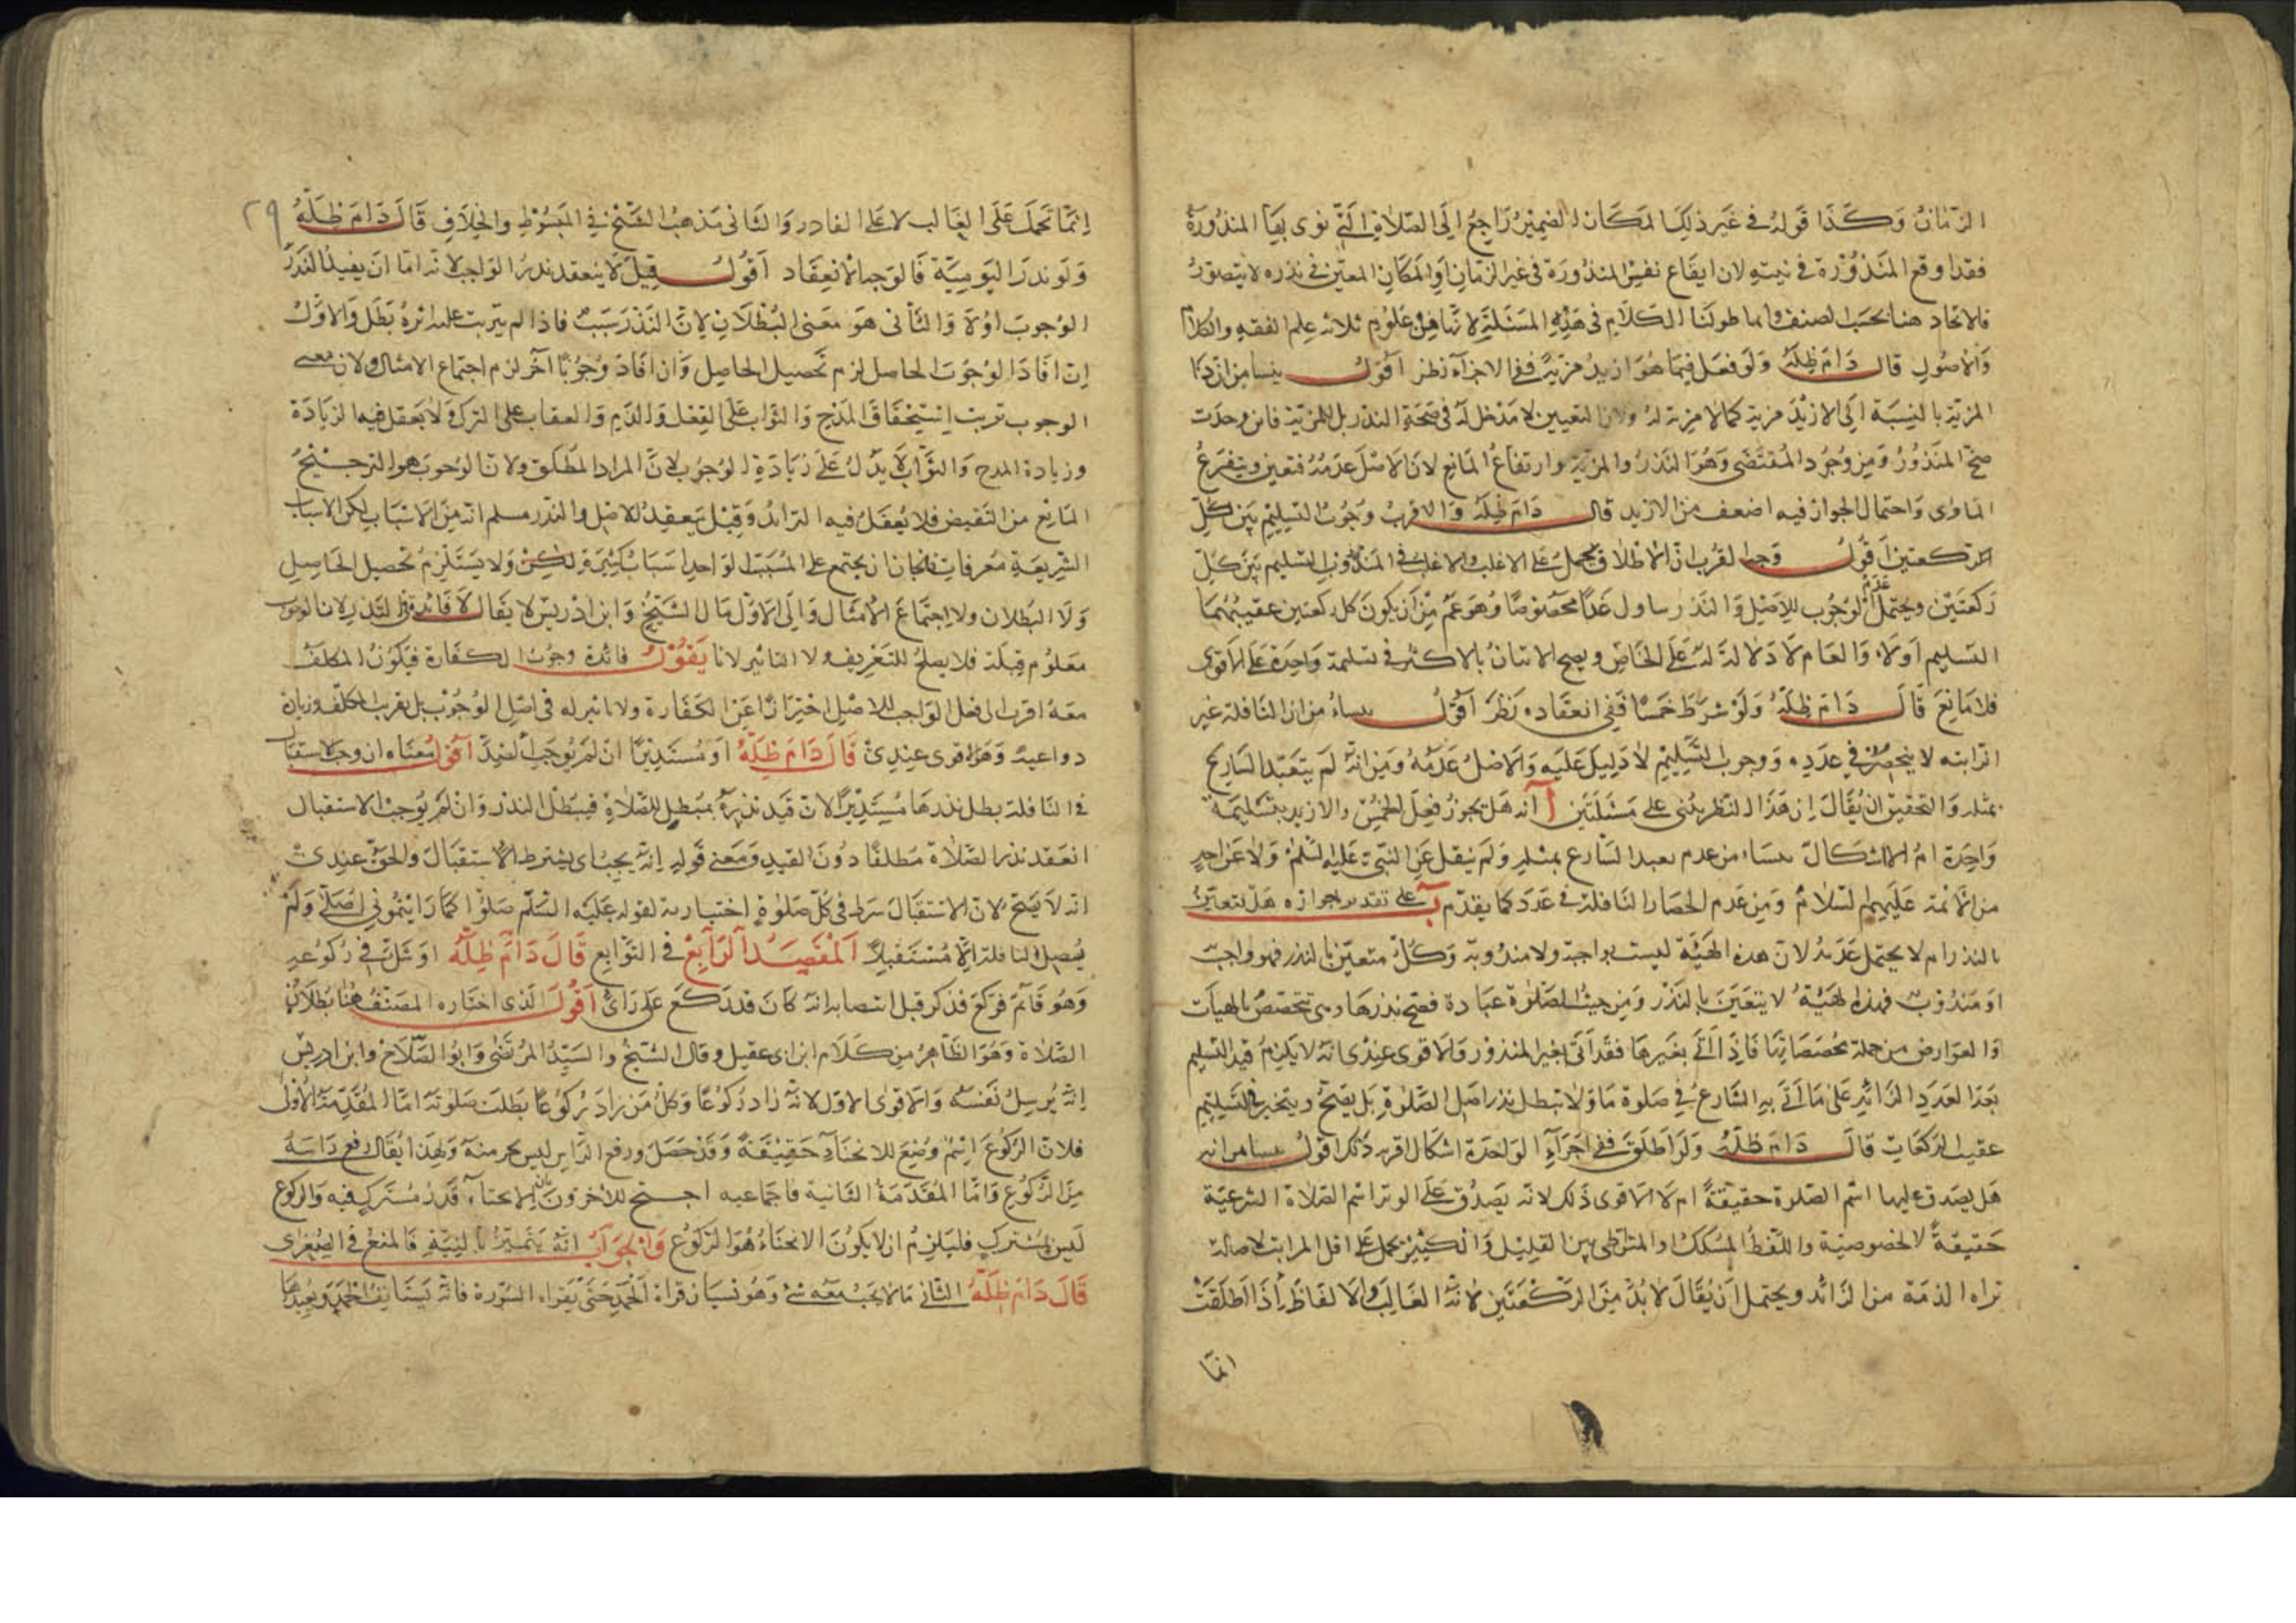 الزمان وكذا قوله في غير ذلك المكان الضمير راجع الى الصلاة التي نوى بها المنذورة
فقد اوقع المنذورة في نيته لان ايقاع نفس المنذورة في غير الزمان او المكان المعين في نذره لا يتصور
فلاتحاد هنا بحسب الصنف وانما طولنا الكلام في هذه المسئلة لانها من علوم ثلاثه علم الفقه والكلام
والاصول قال دام ظله ولو فعل فيما هو ازيد مزية ففي الاجزاء نظر اقول ينشا من ان ذا
المزية بالنسبة الى الازيد مزية كما لا مزية له ولان التعيين لا مدخل له في صحة النذر بل للمزية فان وجدت
صح المنذور ومن وجود المقتضى وهو النذر والمزية وارتفاع المانع لان الاصل عدمه فتعين ويتفرع
المساوى واحتمال الجواز فيه اضعف من الازيد قال دام ظله والاقرب وجوب التسليم بين كل
الركعتين اقول وجه القرب ان الاطلاق يحمل على الاغلب والاغلب في المندوب التسليم بين كل
ركعتين ويحتمل عدم الوجوب للاصل والنذر تناول عددا مخصوصا وهو اعم من ان يكون كل ركعتين عقيبهما
التسليم او لا والعام لا دلالة له على الخاص ويصح الاتيان بالاكثر في تسليمة واحدة على الاقوى
فلا مانع قال دام ظله ولو شرط خمسا ففي انعقاده نظر اقول ينشا من ان النافلة غير
الراتبه لا ينحصر في عدده ووجوب التسليم لا دليل عليه والاصل عدمه ومن انه لم يتعبد الشارع
بمثله والتحقيق ان يقال ان هذا النظر يبنى على مسئلتين آ انه هل يجوز فعل الخمس والازيد بتسليمة
واحدة ام لا اشكال ينشا من عدم تعبد الشارع بمثله ولم ينقل عن النبي عليه السلم ولا عن احد
من الائمة عليهم السلام ومن عدم انحصار النافلة في عدد كما يقدم ب على تقدير جوازه هل يتعين
بالنذر ام لا يحتمل عدمه لان هذه الهيئة ليست بواجبة ولا مندوبة وكل متعين بالنذر فهو واجب
او مندوب فهذه الهيئة لا يتعين بالنذر ومن حيث الصلوة عبادة فصح نذرها وهي تتخصص بالهيات
والعوارض من جملة مخصصاتها فاذا اتى بغيرها فقد اتى بغير المنذور والاقوى عندي انه لا يلزم قيد التسليم
بعد العدد الزائد على ما اتى به الشارع في صلوة ما ولا تبطل نذر اصل الصلوة بل يصح ويتخير في التسليم
عقيب الركعات قال دام ظله ولو اطلق ففي اجزاء الواحدة اشكال اقربه ذلك اقول ينشا من انه
هل يصدق عليها اسم الصلوة حقيقة ام لا الاقوى ذلك لانه يصدق على الوتر اسم الصلاة الشرعية
حقيقة لا لخصوصية واللفظ المشكك والمتواطى بين القليل والكثير يحمل على اقل المراتب لاصالة
براءة الذمة من الزائد ويحتمل ان يقال لا بد من الركعتين لانه الغالب والالفاظ اذا اطلقت
انما
٢٩
انما تحمل على الغالب لا على النادر والثاني مذهب الشيخ في المبسوط والخلاف قال دام ظله
ولو نذر اليومية فالوجه الانعقاد اقول قيل لا ينعقد نذر الواجب لانه اما ان يفيد النذر
الوجوب اولا والثاني هو معنى البطلان لان النذر سبب فاذا لم يترتب عليه اثره بطل والاول
ان افاد الوجوب الحاصل لزم تحصيل الحاصل وان افاد وجوبا آخر لزم اجتماع الامثال ولان معنى
الوجوب ترتب استحقاق المدح والثواب على الفعل والذم والعقاب على الترك ولا يعقل فيه الزيادة
وزيادة المدح والثواب لا يدل على زيادة الوجوب لان المراد المطلق ولان الوجوب هو الترجيح
المانع من النقيض فلا يعقل فيه التزائد وقيل ينعقد للاصل والنذر مسلم انه من الاسباب لكن الاسباب
الشرعية معرفات فجاز ان يجتمع على المسبب الواحد اسباب كثيرة ولكن ولا يستلزم تحصيل الحاصل
ولا البطلان ولا اجتماع الامثال والى الاول مال الشيخ وابن ادريس لا يقال لا فائدة في النذر لان الوجوب
معلوم قبله فلا يصلح للتعريف ولا التاثير لانا يقول فائدة وجوب الكفارة فيكون المكلف
معه اقرب الى فعل الواجب للاصل احترازا عن الكفارة ولا تاثير له في اصل الوجوب بل تقرب المكلف وزيادة
دواعيه وهو اقوى عندي قال دام ظله او مستدبرا ان لم يوجب الضد اقول معناه ان وجب الاستقبال
في النافلة بطل نذرها مستدبرا لان قيد نذره بمبطل للصلاة فيبطل النذر وان لم يوجب الاستقبال
انعقد نذر الصلاة مطلقا دون القيد ومعنى قوله انه يجب اى يشترط الاستقبال والحق عندي
انه لا يصح لان الاستقبال شرط في كل صلوة اختيارية لقوله عليه السلم صلوا كما رايتموني اصلي ولم
يصل النافلة الا مستقبلا المقصد الرابع في التوابع قال دام ظله او شك في ركوعه
وهو قائم فركع فذكر قبل انتصابه انه كان قد ركع على راى اقول الذي اختاره المصنف هنا بطلان
الصلاة وهو الظاهر من كلام ابن ابي عقيل وقال الشيخ والسيد المرتضى وابو الصلاح وابن ادريس
انه يرسل نفسه والاقوى الاول لانه زاد ركوعا وكل من زاد ركوعا بطلت صلوته اما المقدمة الاولى
فلان الركوع اسم وضع للانحناء حقيقة وقد حصل ورفع الراس ليس بجزء منه ولهذا يقال رفع راسه
من الركوع واما المقدمة الثانية فاجماعيه احتج الآخرون بان الانحناء قدر مشترك فيه والركوع
ليس بمشترك فليلزم ان لا يكون الانحناء هو الركوع والجواب انه يتميز بالنية فالمنع في الصغرى
قال دام ظله الثاني ما لا يجب معه شئ وهو نسيان قراءة الحمد حتى يقراء السورة فانه يستانف الحمد ويعيدها